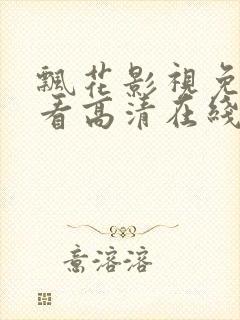 飄花影視免
看高清在綫
意溶溶